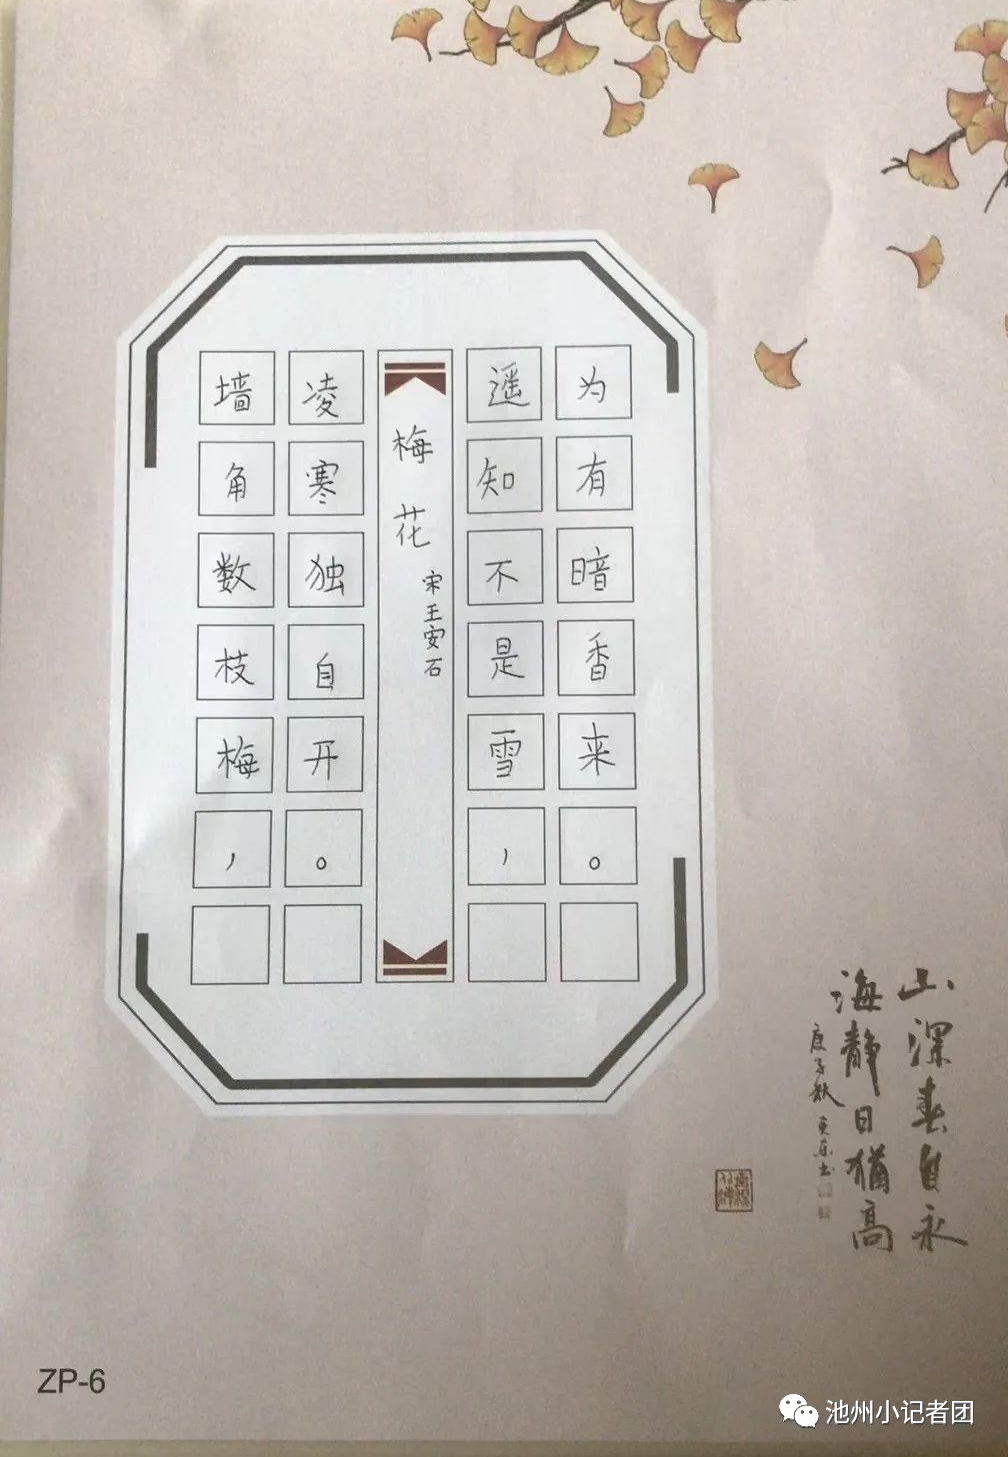 梅花
宋王安石
墙角数枝梅，
凌寒独自开。
遥知不是雪，
为有暗香来。
山深春自永
海静日犹高
庚子秋
ZP-6
池州小记者团